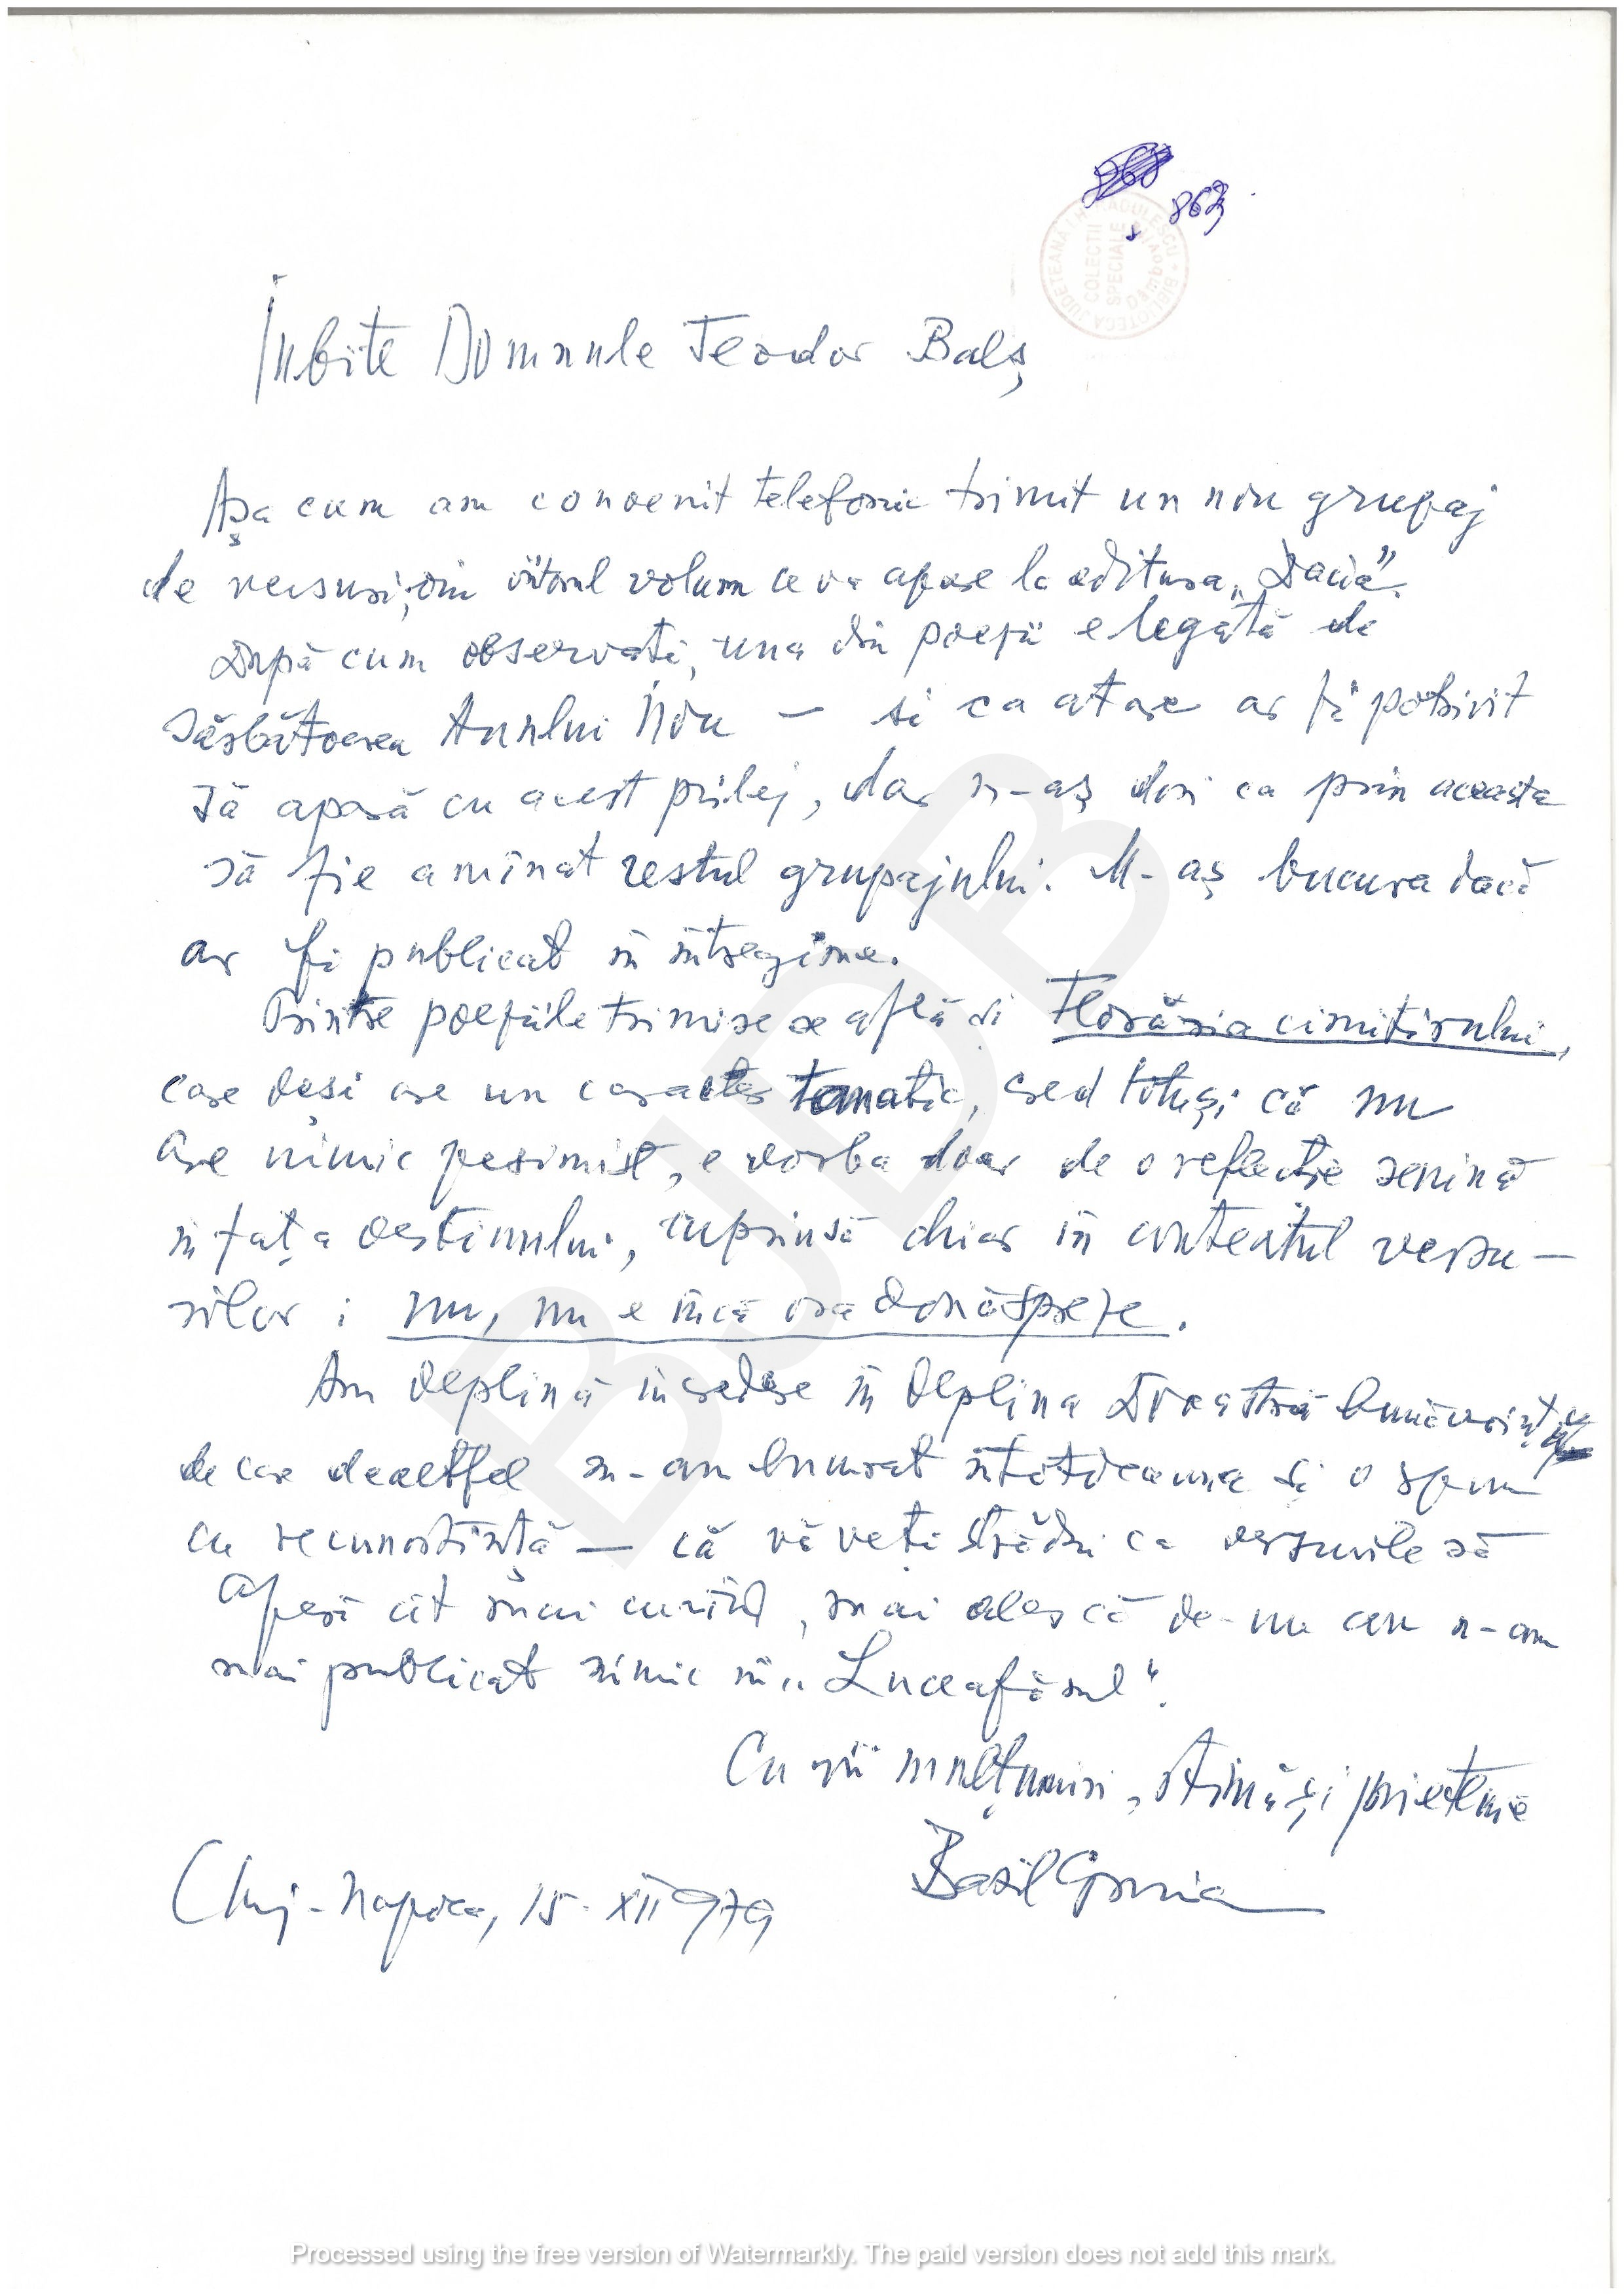 863
BIBLIOTECA JUDEȚEANĂ I.H. RĂDULESCU
COLECȚII SPECIALE
Iubite Domnule Teodor Balș
Așa cum am convenit telefonic trimit un nou grupaj
de versuri, din viitorul volum ce va apare la editura „Dacia”.
După cum observați, una din poezii e legată de
sărbătoarea Anului Nou — și ca atare ar fi potrivit
să apară cu acest prilej, dar n-aș dori ca prin aceasta
să fie amînat restul grupajului. M-aș bucura dacă
ar fi publicat în întregime.
Printre poeziile trimise se află și Florăria cimitirului,
care deși are un caracter tanatic, cred totuși că nu
are nimic pesimist, e vorba doar de o reflecție senină
în fața destinului, cuprinsă chiar în contextul versu-
rilor: nu, nu e încă ora douăsprezece.
Am deplină încredere în deplina Dvoastră bunăvoință
de care dealtfel m-am bucurat întotdeauna și o spun
cu recunoștință — că vă veți strădui ca versurile să
apară cît mai curînd, mai ales că de-un an n-am
mai publicat nimic în „Luceafărul”.
Cu vii mulțumiri, stimă și prietenie
Basil Gruia
Cluj-Napoca, 15. XII 979
BJDB
Processed using the free version of Watermarkly. The paid version does not add this mark.